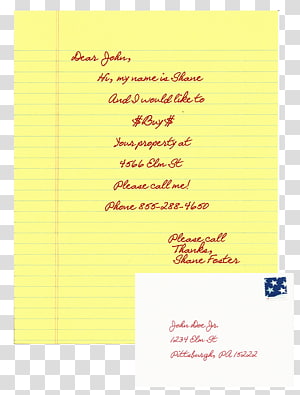 Dear John,
Hi, my name is Shane
And I would like to
$Buy$
Your property at
4566 Elm St
Please call me!
Phone 855-288-4650
Please call
Thanks,
Shane Foster
John Doe Jr.
1234 Elm St
Pittsburgh, PA 15222